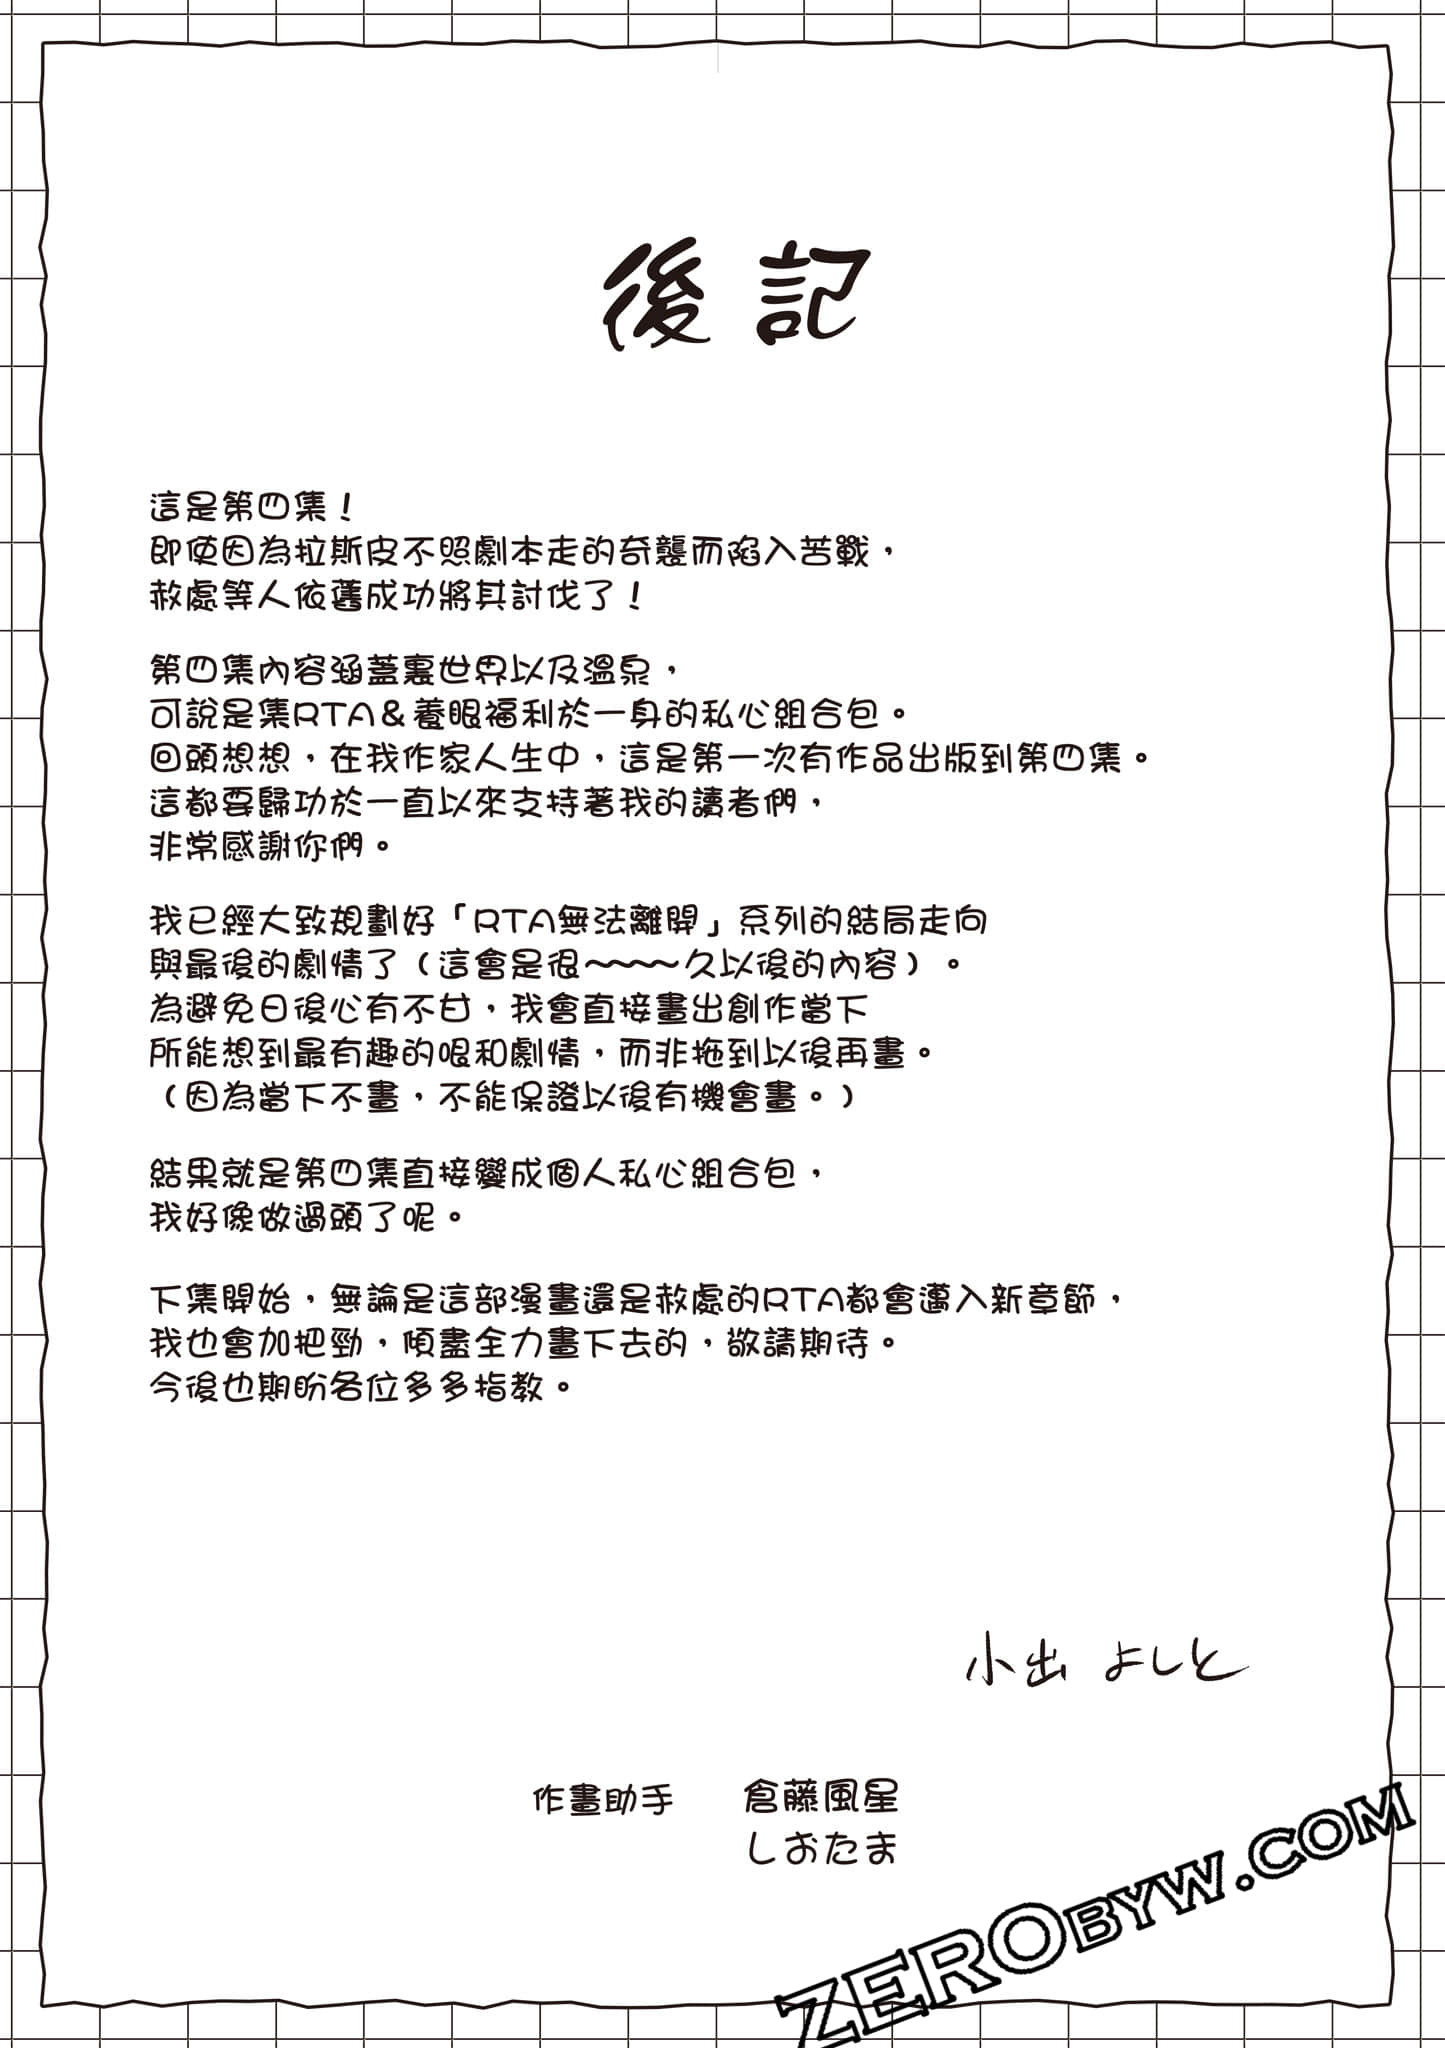 後記
這是第四集！
即使因為拉斯皮不照劇本走的奇襲而陷入苦戰，
赦處等人依舊成功將其討伐了！
第四集內容涵蓋裏世界以及溫泉，
可說是集RTA＆養眼福利於一身的私心組合包。
回頭想想，在我作家人生中，這是第一次有作品出版到第四集。
這都要歸功於一直以來支持著我的讀者們，
非常感謝你們。
我已經大致規劃好「RTA無法離開」系列的結局走向
與最後的劇情了（這會是很～～～～久以後的內容）。
為避免日後心有不甘，我會直接畫出創作當下
所能想到最有趣的哏和劇情，而非拖到以後再畫。
（因為當下不畫，不能保證以後有機會畫。）
結果就是第四集直接變成個人私心組合包，
我好像做過頭了呢。
下集開始，無論是這部漫畫還是赦處的RTA都會邁入新章節，
我也會加把勁，傾盡全力畫下去的，敬請期待。
今後也期盼各位多多指教。
小出 よしと
作畫助手 倉藤風星
しおたま
ZEROBYW.COM